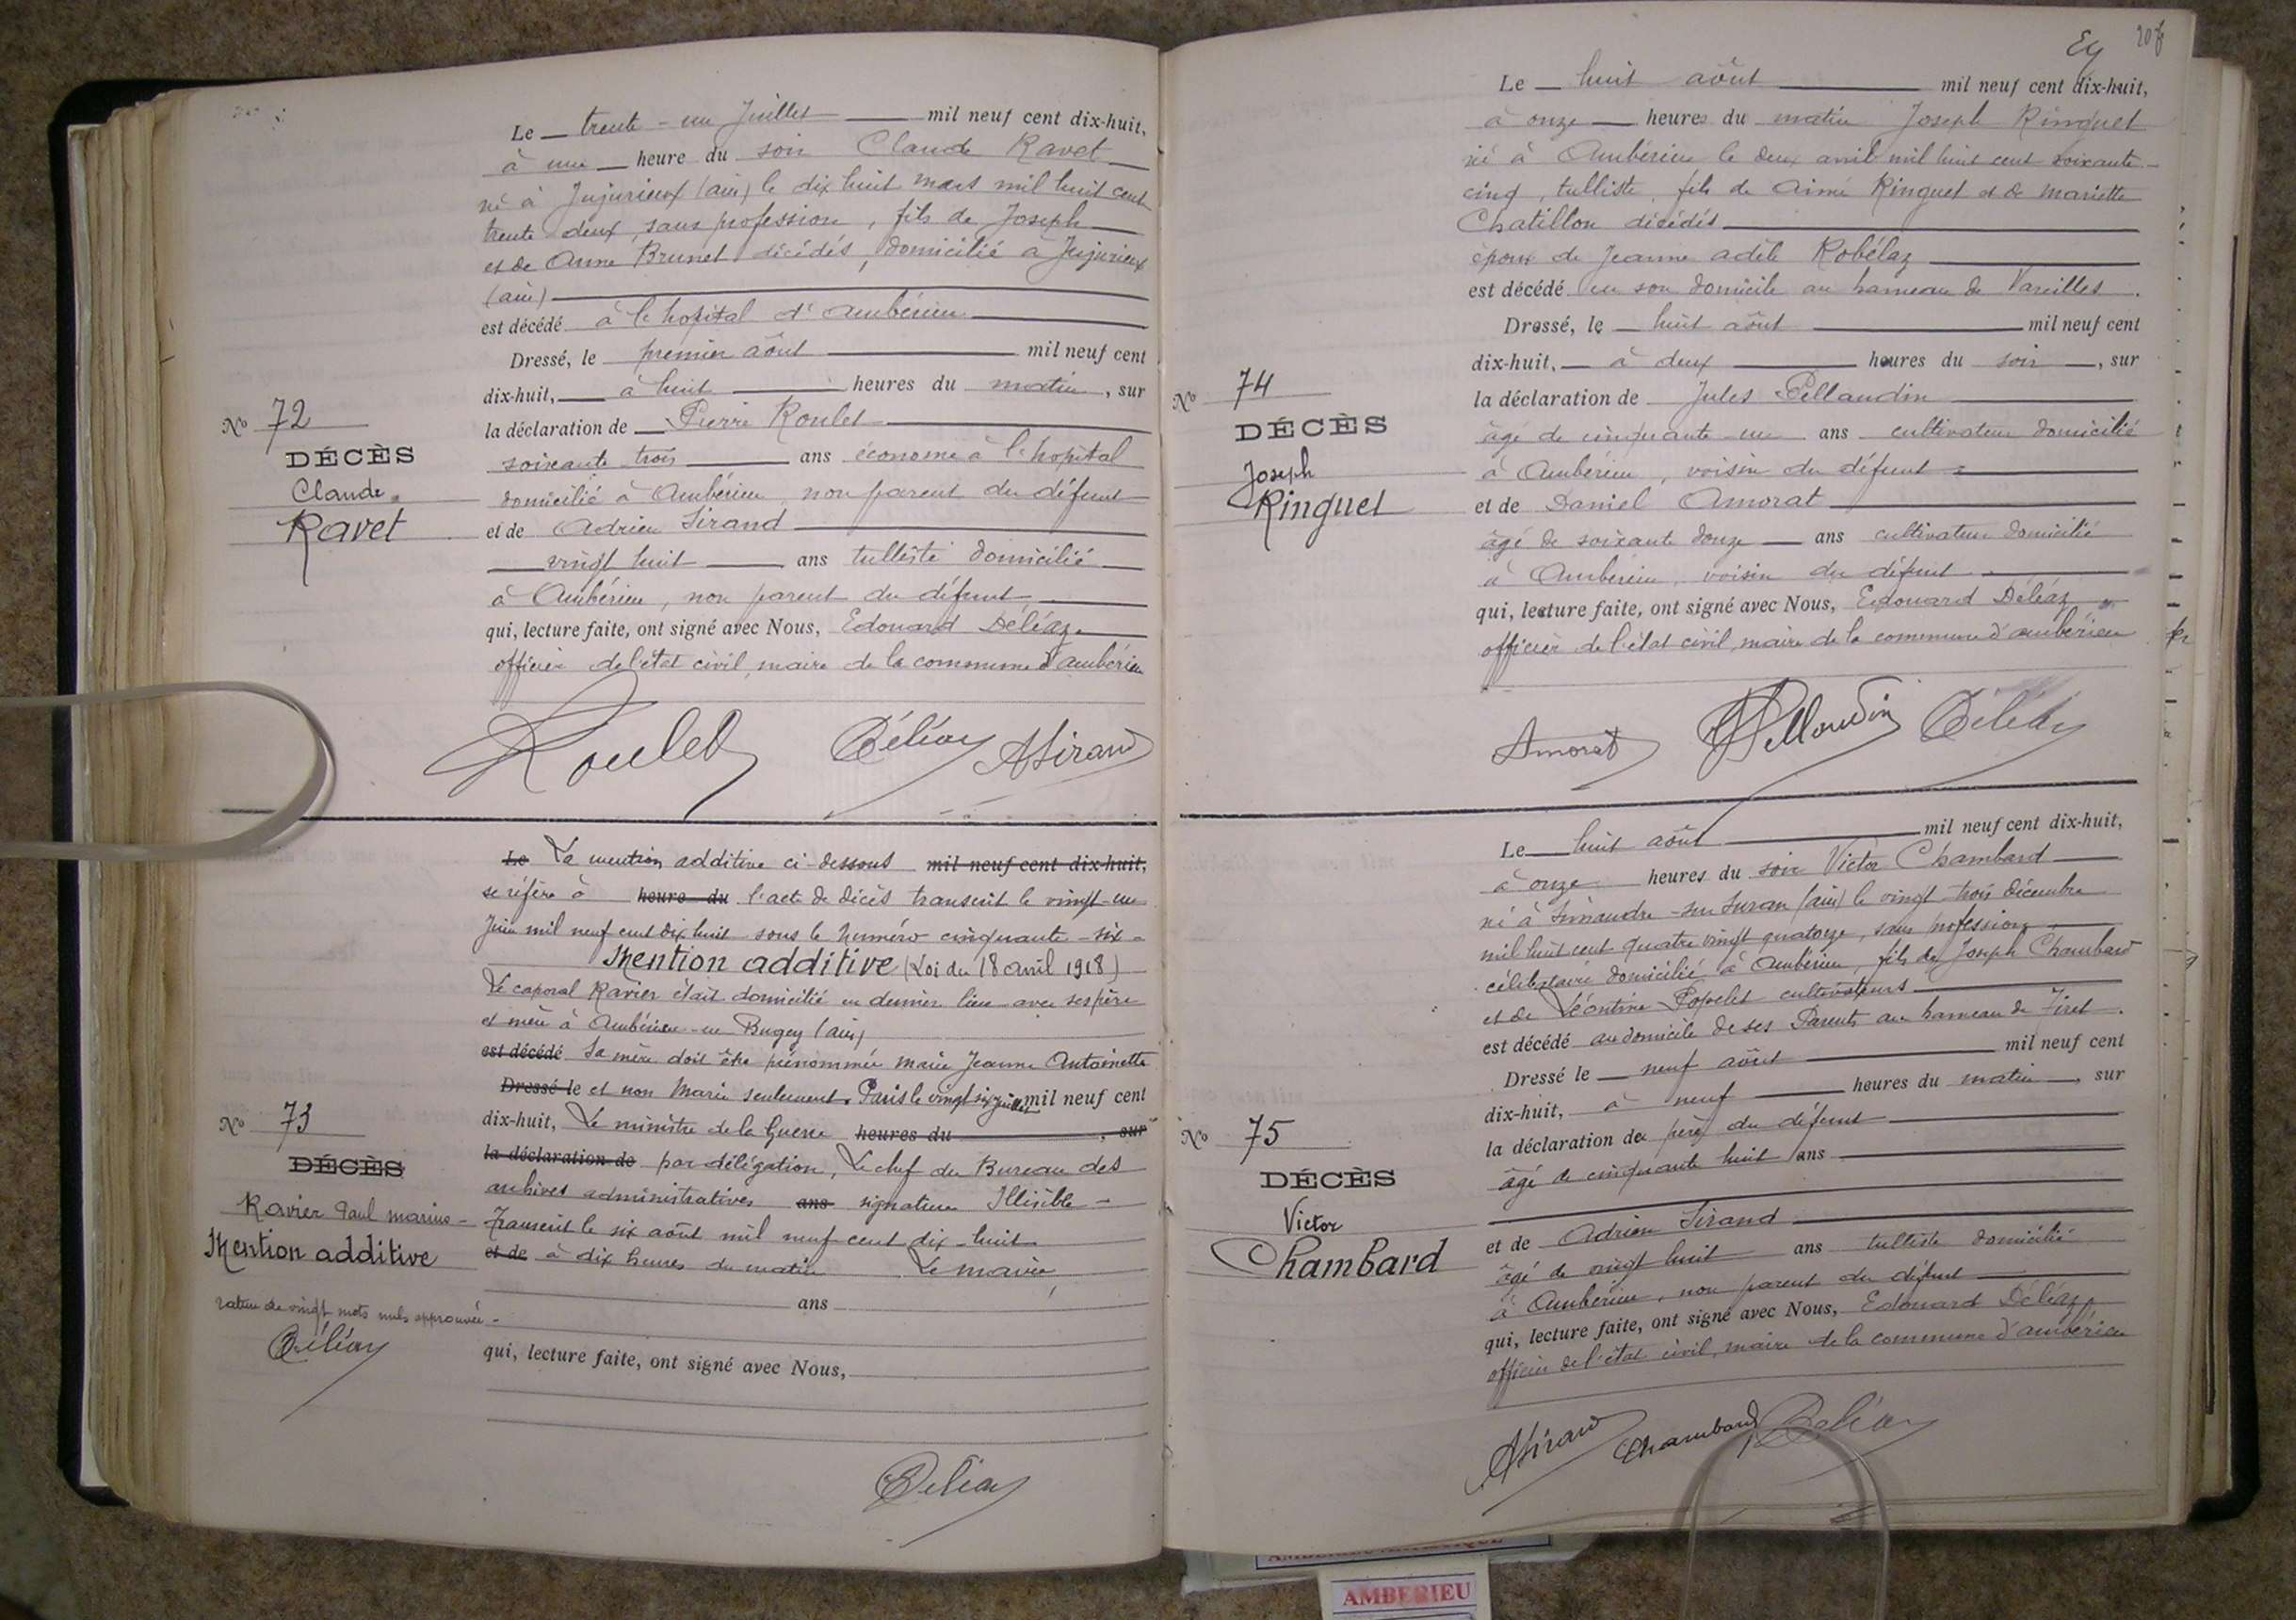 Le trente-un Juillet mil neuf cent dix-huit,
à une heure du soir Claude Ravet
né à Jujurieux (ain) le dix huit mars mil huit cent
trente deux, sans profession, fils de Joseph
et de Anne Brunet décédés, domicilié à Jujurieux
(ain)
est décédé à l'hopital d'Ambérieu
Dressé, le premier août mil neuf cent
dix-huit, à huit heures du matin, sur
la déclaration de Pierre Roulet
soixante trois ans économe à l'hopital
domicilié à Ambérieu, non parent du défunt
et de Adrien Sirand
vingt huit ans tulliste domicilié
à Ambérieu, non parent du défunt
qui, lecture faite, ont signé avec Nous, Edouard Déléaz
officier de l'état civil, maire de la commune d'ambérieu
Roulet Déléaz ASirand
No 72
DÉCÈS
Claude
Ravet
Le La mention additive ci-dessous mil neuf cent dix-huit,
se réfère à heure du l'acte de décès transcrit le vingt-un
Juin mil neuf cent dix huit sous le numéro cinquante-six-
Mention additive (Loi du 18 avril 1918)
Le caporal Ravier était domicilié en dernier lieu avec ses père
et mère à Ambérieu-en Bugey (ain)
est décédé Sa mère doit être prénommée Marie Jeanne Antoinette
Dressé le et non Marie seulement. Paris le vingt six juillet mil neuf cent
dix-huit, Le ministre de la Guerre heures du , sur
la déclaration de par délégation, Le chef du Bureau des
archives administratives ans signature Illisible -
Transcrit le six août mil neuf cent dix-huit
et de à dix heures du matin Le maire,
ans
qui, lecture faite, ont signé avec Nous,
Déléaz
No 73
DÉCÈS
Ravier Paul marius -
Mention additive
rature de vingt mots nuls approuvée -
Déléaz
207
Le huit août mil neuf cent dix-huit,
à onze heures du matin Joseph Ringuet
né à Ambérieu le deux avril mil huit cent soixante-
cinq, tulliste, fils de Aimé Ringuet et de Mariette
Chatillon décédés
époux de Jeanne Adèle Robélaz
est décédé en son domicile au hameau de Vareilles.
Dressé, le huit août mil neuf cent
dix-huit, à deux heures du soir, sur
la déclaration de Jules Pellaudin
âgé de cinquante-un ans cultivateur domicilié
à Ambérieu, voisin du défunt
et de Daniel Amorat
âgé de soixante douze ans cultivateur domicilié
à Ambérieu, voisin du défunt
qui, lecture faite, ont signé avec Nous, Edouard Déléaz
officier de l'état civil, maire de la commune d'ambérieu
Amorat Pellaudin Déléaz
No 74
DÉCÈS
Joseph
Ringuet
Le huit août mil neuf cent dix-huit,
à onze heures du soir Victor Chambard
né à Simandre-sur Suran (ain) le vingt-trois décembre
mil huit cent quatre vingt quatorze, sans profession
célibataire domicilié à Ambérieu, fils de Joseph Chambard
et de Léontine Popelet cultivateurs
est décédé au domicile de ses Parents au hameau de Tiret.
Dressé le neuf août mil neuf cent
dix-huit, à neuf heures du matin, sur
la déclaration de père du défunt
âgé de cinquante huit ans
et de Adrien Sirand
âgé de vingt huit ans tulliste domicilié
à Ambérieu, non parent du défunt
qui, lecture faite, ont signé avec Nous, Edouard Déléaz,
officier de l'état civil, maire de la commune d'ambérieu
ASirand Chambard Déléaz
No 75
DÉCÈS
Victor
Chambard
AMBERIEU